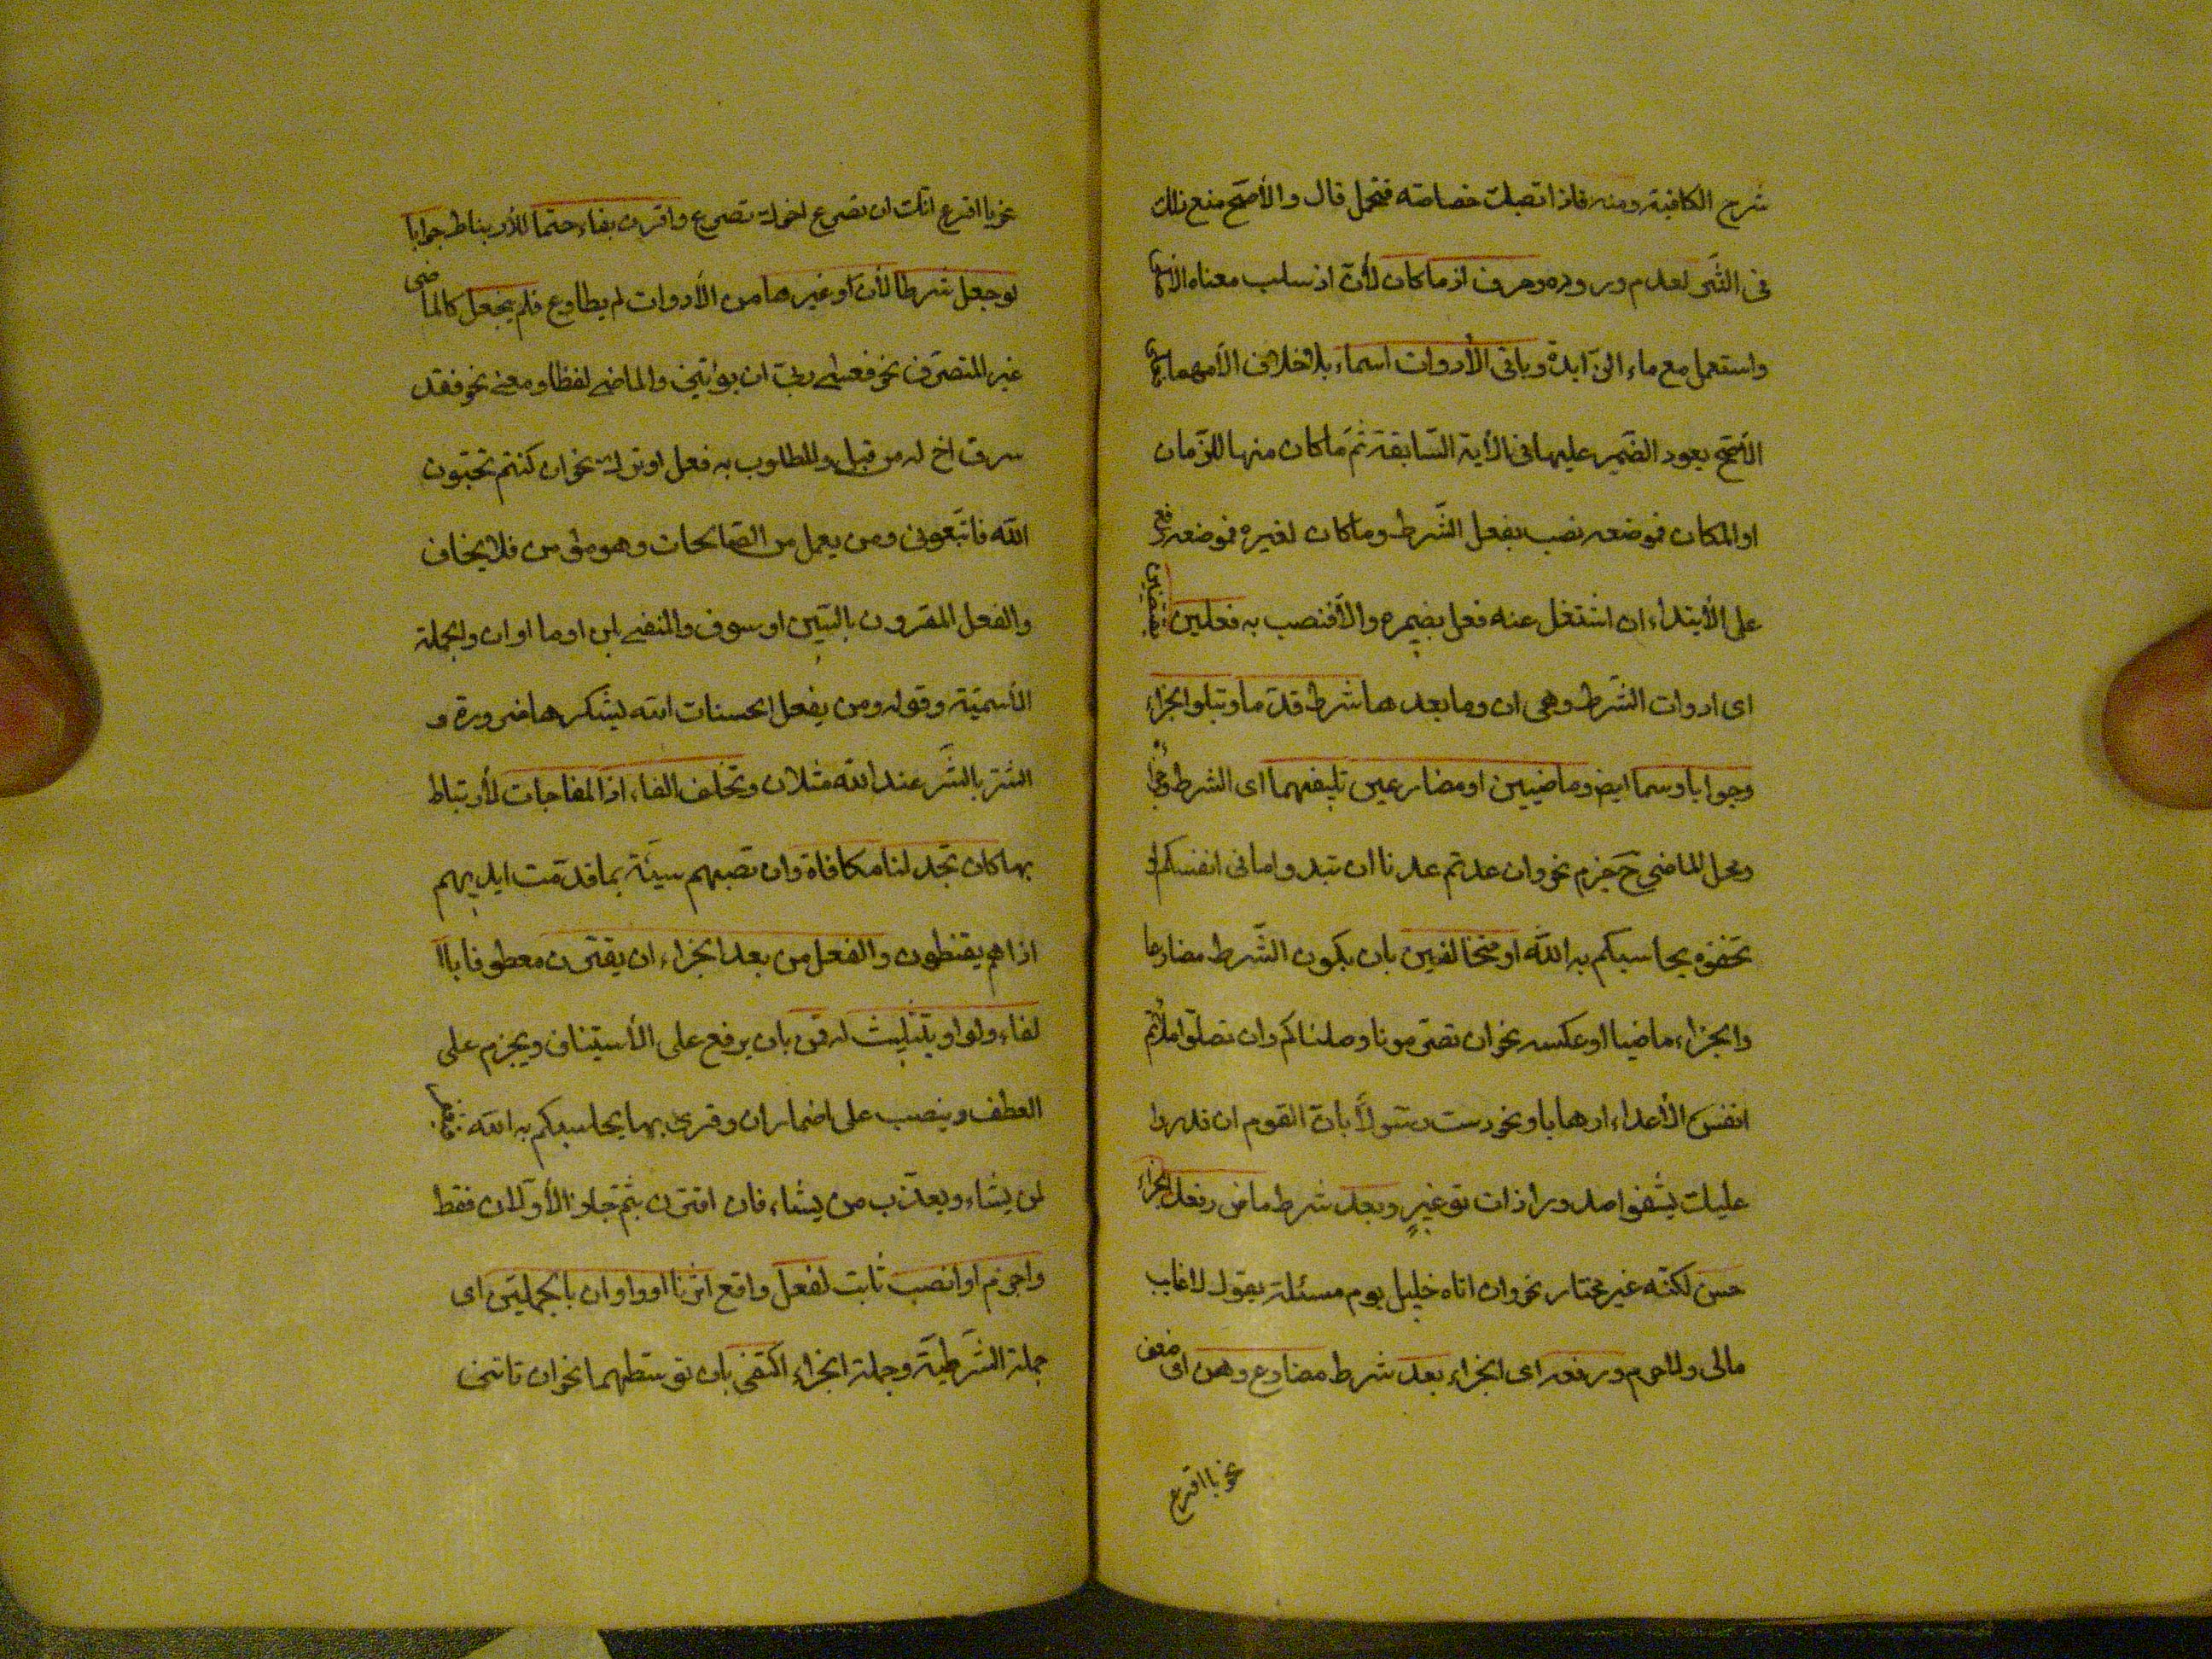 شرح الكافية ومنه فاذا تصبك خصاصة فتجمل قال والأصح منع ذلك
فى النثر لعدم وروده وحرف اذما كان لأن اذ سلب معناه الأصلى
واستعمل مع ماء الزايدة وباقى الأدوات اسماء بلاخلاف الا مهما على
الأصح بعود الضمير عليها فى الأية السابقة ثم ما كان منها للزمان
او المكان فموضعه نصب بفعل الشرط وما كان لغيره فموضعه رفع
على الأبتداء ان اشتغل عنه فعل بضميره والا فنصب به فعلين يقتضين
اى ادوات الشرط وهى ان وما بعدها شرط قدما ويتلوا الجزاء
وجوابا وسما ايض وماضيين او مضارعين تليفهما اى الشرط والجزاء
ومحل الماضى ح جزم نحو وان عدتم عدنا ان تبدوا ما فى انفسكم او
تخفوه يحاسبكم به الله او متخالفين بان يكون الشرط مضارعا
والجزاء ماضيا او عكسه نحو ان تصرمونا وصلناكم وان تصلوا ملأتم
انفس الأعداء ارهابا ونحو دست رسولا بان القوم ان قدروا
عليك يشفوا صدورا ذات توغير وبعد شرط ماض رفعك الجزاء
حسن لكنه غير مختار نحو وان اتاه خليل يوم مسئلة يقول لا غايب
مالى ولا حرم ورفعه اى الجزاء بعد شرط مضارع وهن اى ضعف
نحو يا اقرع
نحو يا اقرع انك ان تصرع اخوك تصرع واقرن بفاء حتما للأرتباط جوابا
لو جعل شرطا لأن او غيرها من الأدوات لم يطاوع فلم ينجعل كالماضى
غير المتصرف نحو فعسى ربى ان يؤتين والماضى لفظا ومعنى نحو فقد
سرق اخ له من قبل والمطلوب به فعل او ترك نحو ان كنتم تحبون
الله فاتبعونى ومن يعمل من الصالحات وهو مؤمن فلا يخاف
والفعل المقرون بالسين او سوف والمنفى بلن او ما او ان والجملة
الأسمية وقوله ومن يفعل الحسنات الله يشكرها ضرورة و
الشر بالشر عند الله مثلان وتخلف الفاء اذا المفاجات لأرتباط
بها كان تجد لنا مكافاة وان تصبهم سيئة بما قدمت ايديهم
اذا هم يقنطون والفعل من بعد الجزاء ان يقترن معطوفا باا
لفاء ولواو بتثليث له قمن بان يرفع على الأستيناف ويجزم على
العطف وينصب على اضمار ان وقرئ بها يحاسبكم به الله فيغفر
لمن يشاء ويعذب من يشاء فان اقترن بثم جاز الأولان فقط
واجزم او انصب ثابت لفعل واقع اثر فا او واو ان بالجملتين اى
جملة الشرطية وجملة الجزاء اكتفى بان توسطهما نحو ان تاتنى